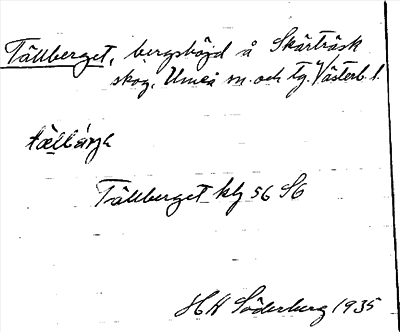 Tällberget, bergshöjd å Skärträsk
skog, Umeå sn och tg. Västerb. l.
Tällberget kbl 56 SG
HH Söderberg 1935